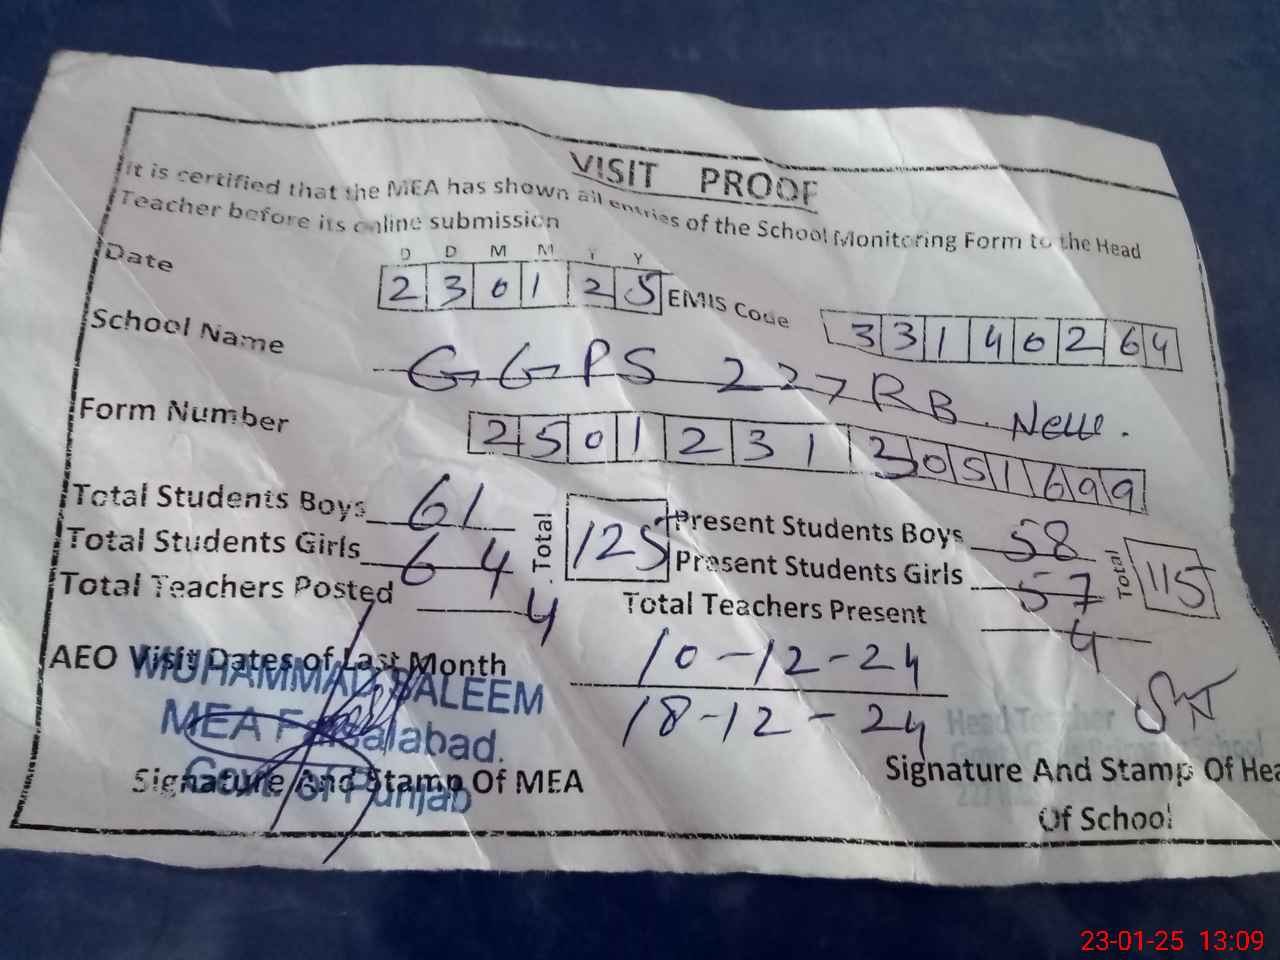 VISIT PROOF
It is certified that the MEA has shown all entries of the School Monitoring Form to the Head
Teacher before its online submission
D D M M Y Y
Date 2 3 0 1 2 5 EMIS Code 3 3 1 4 0 2 6 4
School Name G G PS 227 RB. New.
Form Number 2 5 0 1 2 3 1 3 0 5 1 6 9 9
Total Students Boys 61 Total 125 Present Students Boys 58 Total 115
Total Students Girls 64 Present Students Girls 57
Total Teachers Posted 4 Total Teachers Present 4
AEO Visit Dates of Last Month 10-12-24
18-12-24
MUHAMMAD SALEEM
MEA Faisalabad.
Govt. of Punjab
Head Teacher
Signature And Stamp Of MEA
Signature And Stamp Of Hea
Of School
23-01-25 13:09